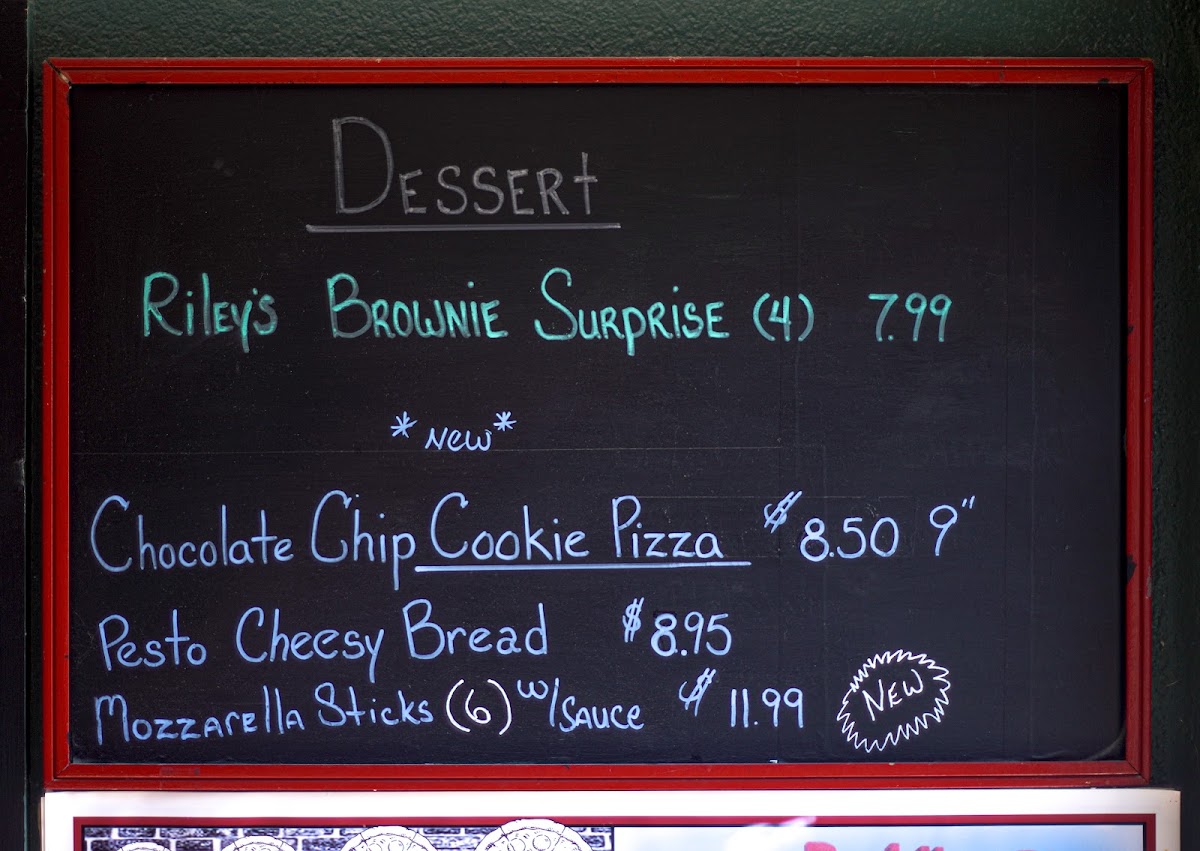 Dessert
Riley's Brownie Surprise (4) 7.99
*New*
Chocolate Chip Cookie Pizza $8.50 9"
Pesto Cheesy Bread $8.95
Mozzarella Sticks (6) w/Sauce $11.99 New